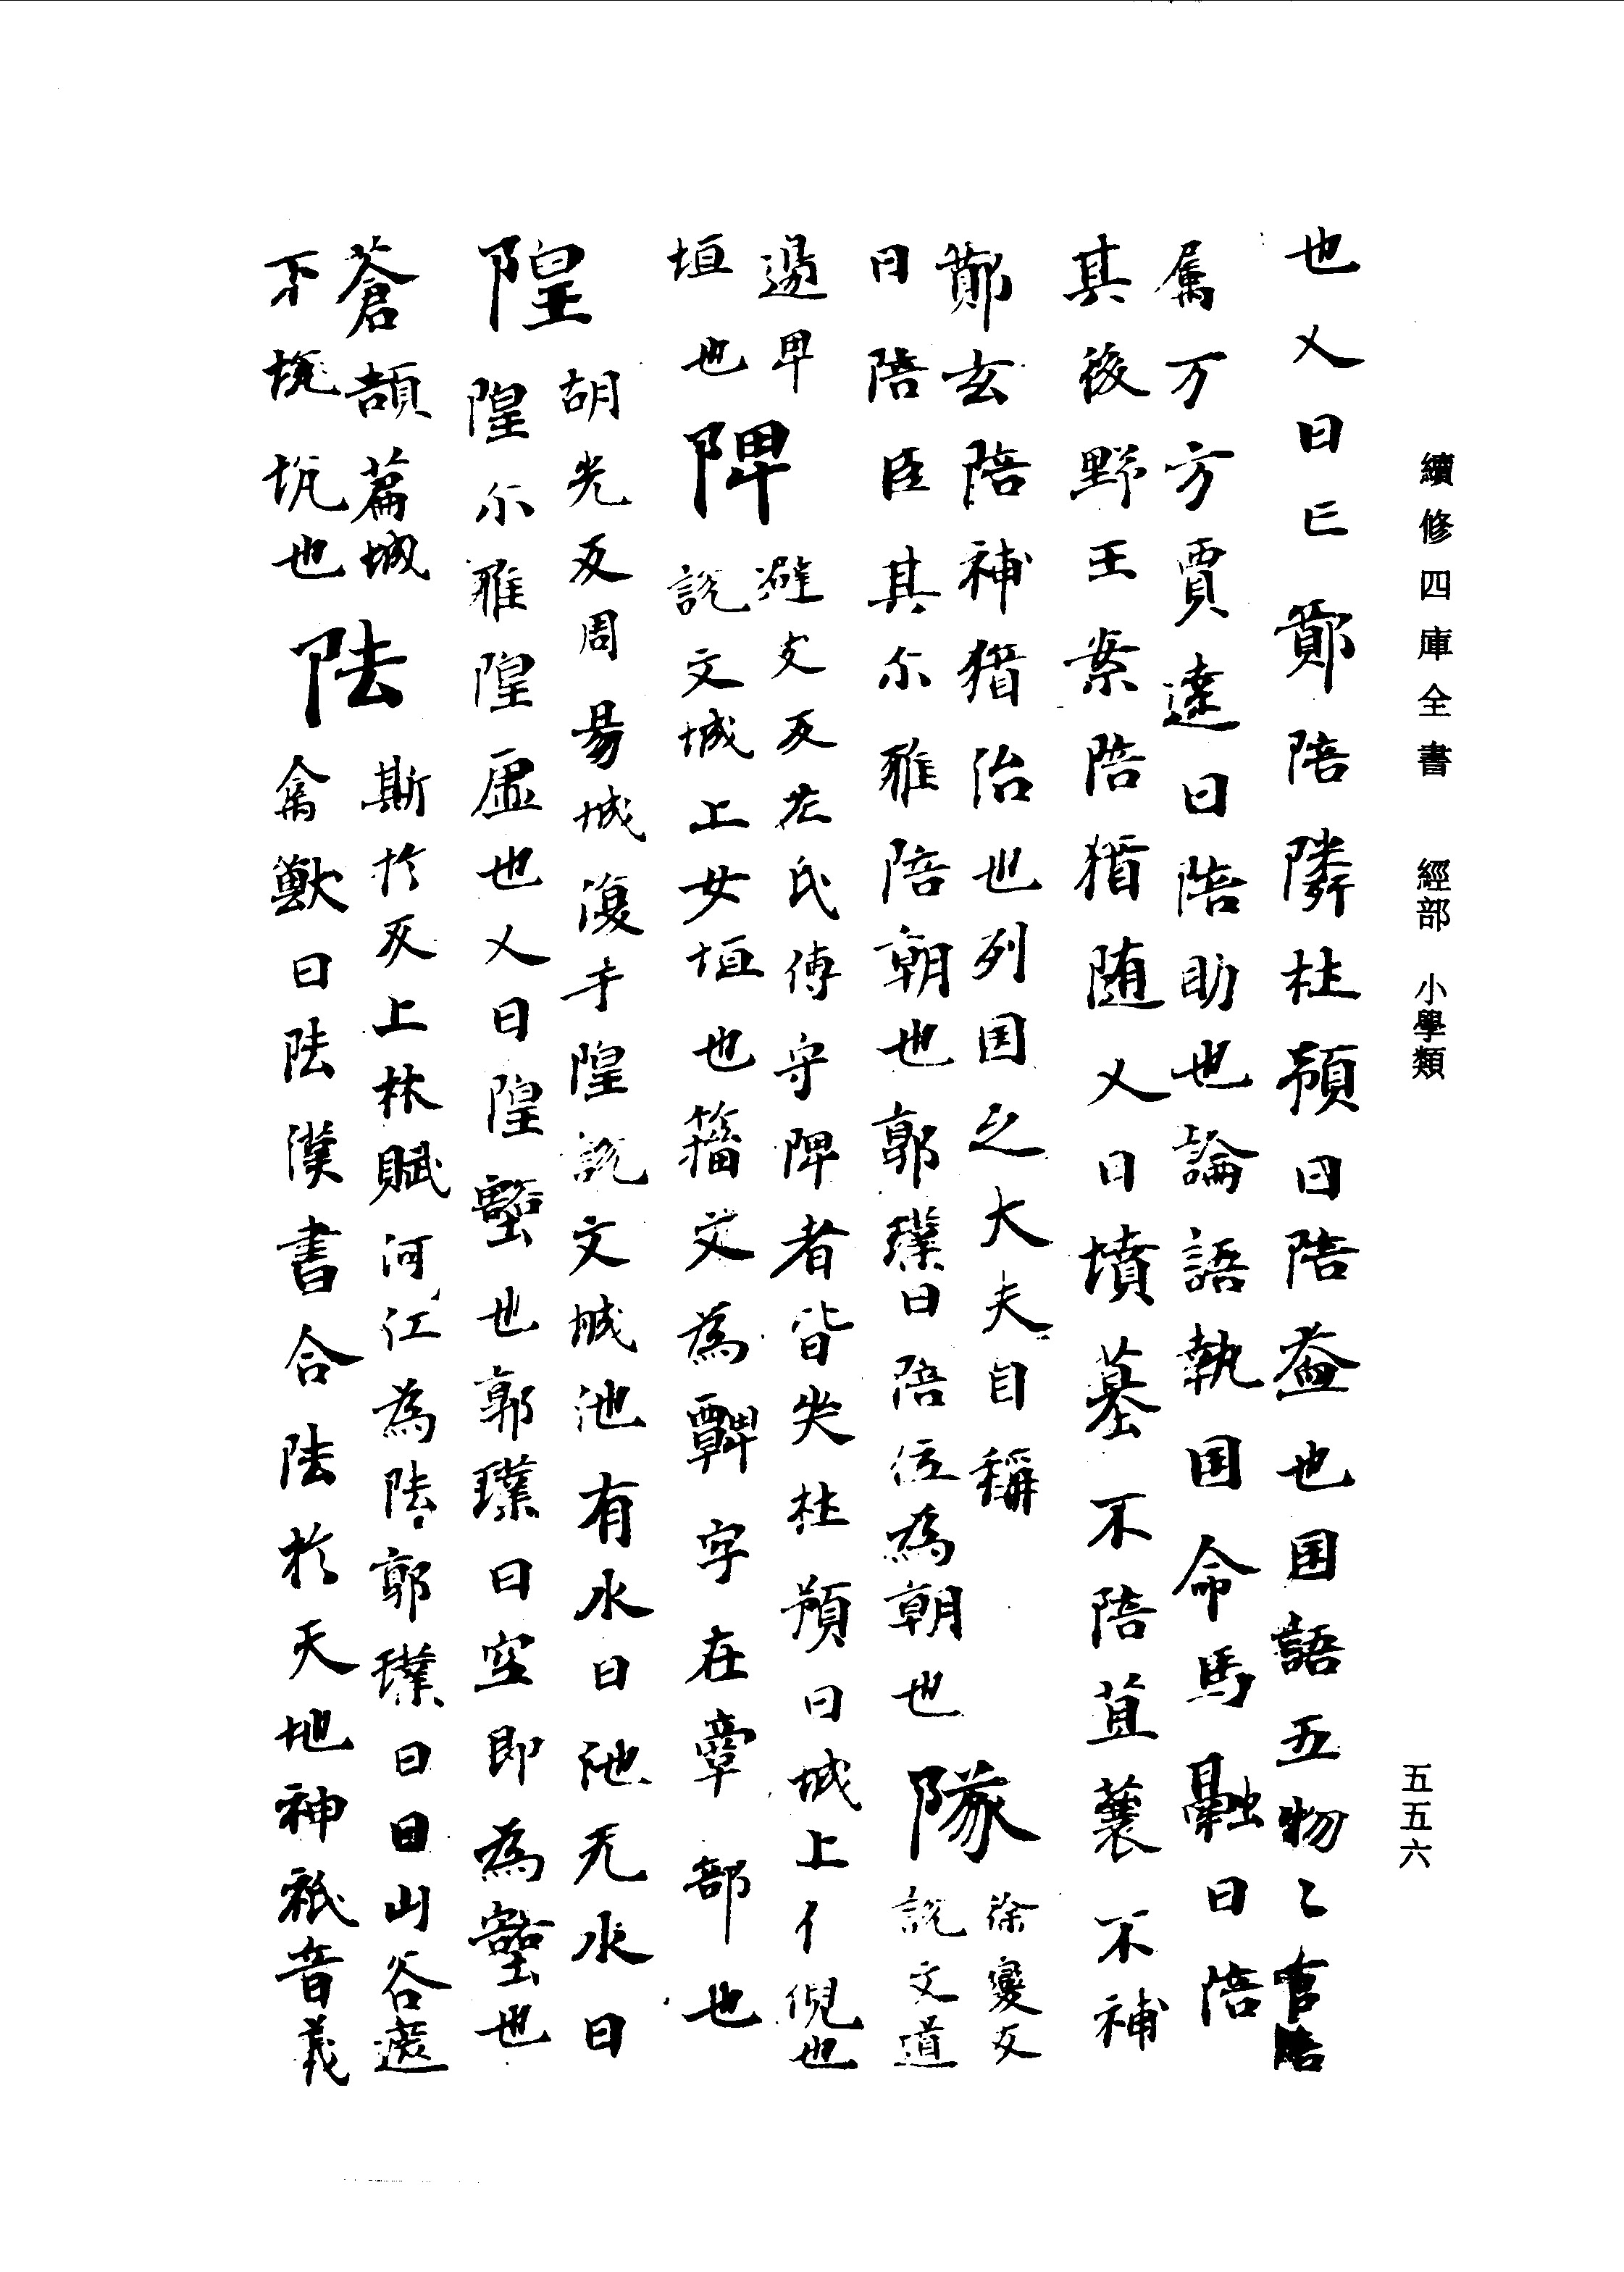 續修四庫全書 經部 小學類
五五六
也乂曰亡鄭陪隣杜預曰陪益也国語五物〻官陪
属万方賈逵曰陪助也論語執国命馬融曰陪
其後野王案陪猶随乂曰墳墓不陪苴蓑不補
鄭玄陪補猶治也列国之大夫自稱
曰陪臣其尒雅陪朝也郭璞曰陪位為朝也隊徐夐反
說文道
邊卑
垣也陴避支反左氏傳守陴者皆哭杜預曰城上亻倪也
說文城上女垣也籀文為䫌字在𩫖部也
隍胡光反周易城復于隍說文城池有水曰池无水曰
隍尒雅隍虛也乂曰隍壑也郭璞曰空即為壑也
蒼頡篇城
下坑坑也阹斯於反上林賦河江為阹郭璞曰曰山谷遮
禽獸曰阹漢書合阹於天地神祇音義